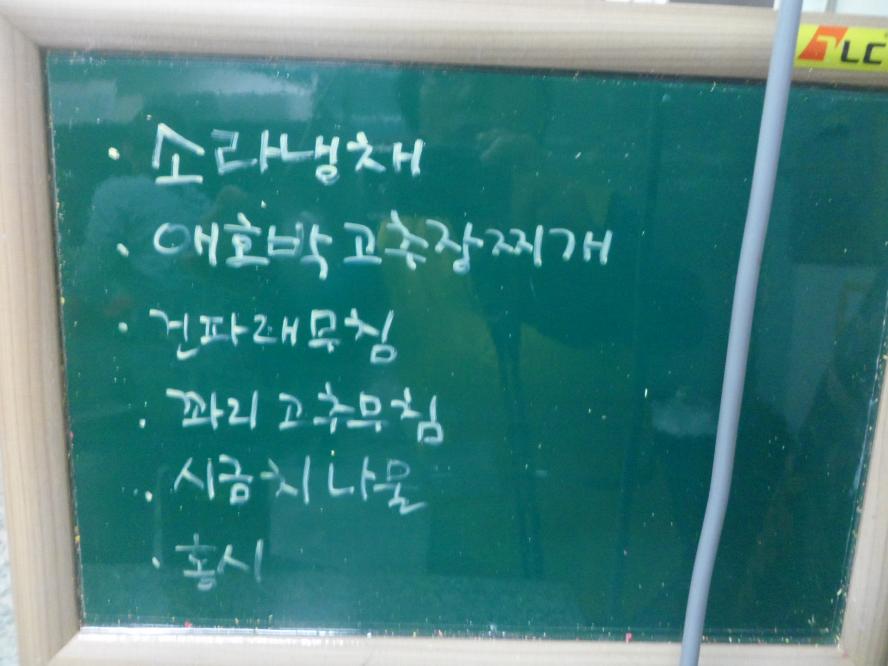 LC
· 소라냉채
· 애호박고추장찌개
· 건파래무침
· 꽈리고추무침
· 시금치나물
· 홍시